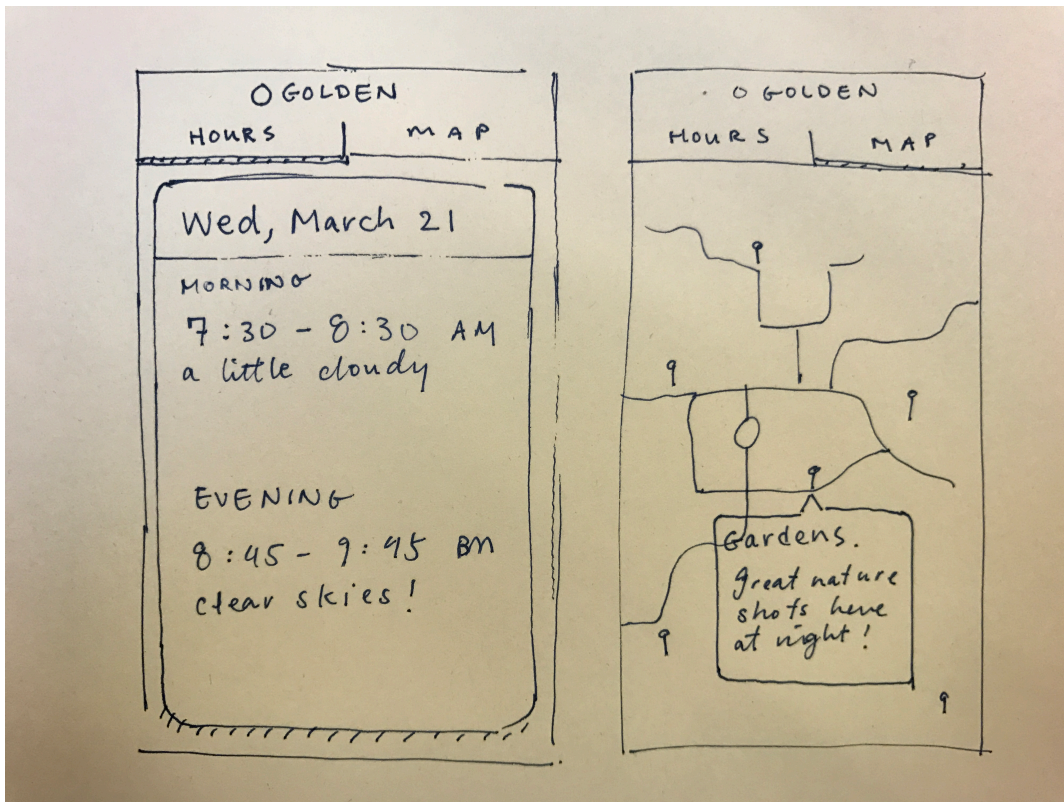 O GOLDEN
HOURS MAP
Wed, March 21
MORNING
7:30 - 8:30 AM
a little cloudy
EVENING
8:45 - 9:45 PM
clear skies!
O GOLDEN
HOURS MAP
Gardens.
great nature
shots here
at night!